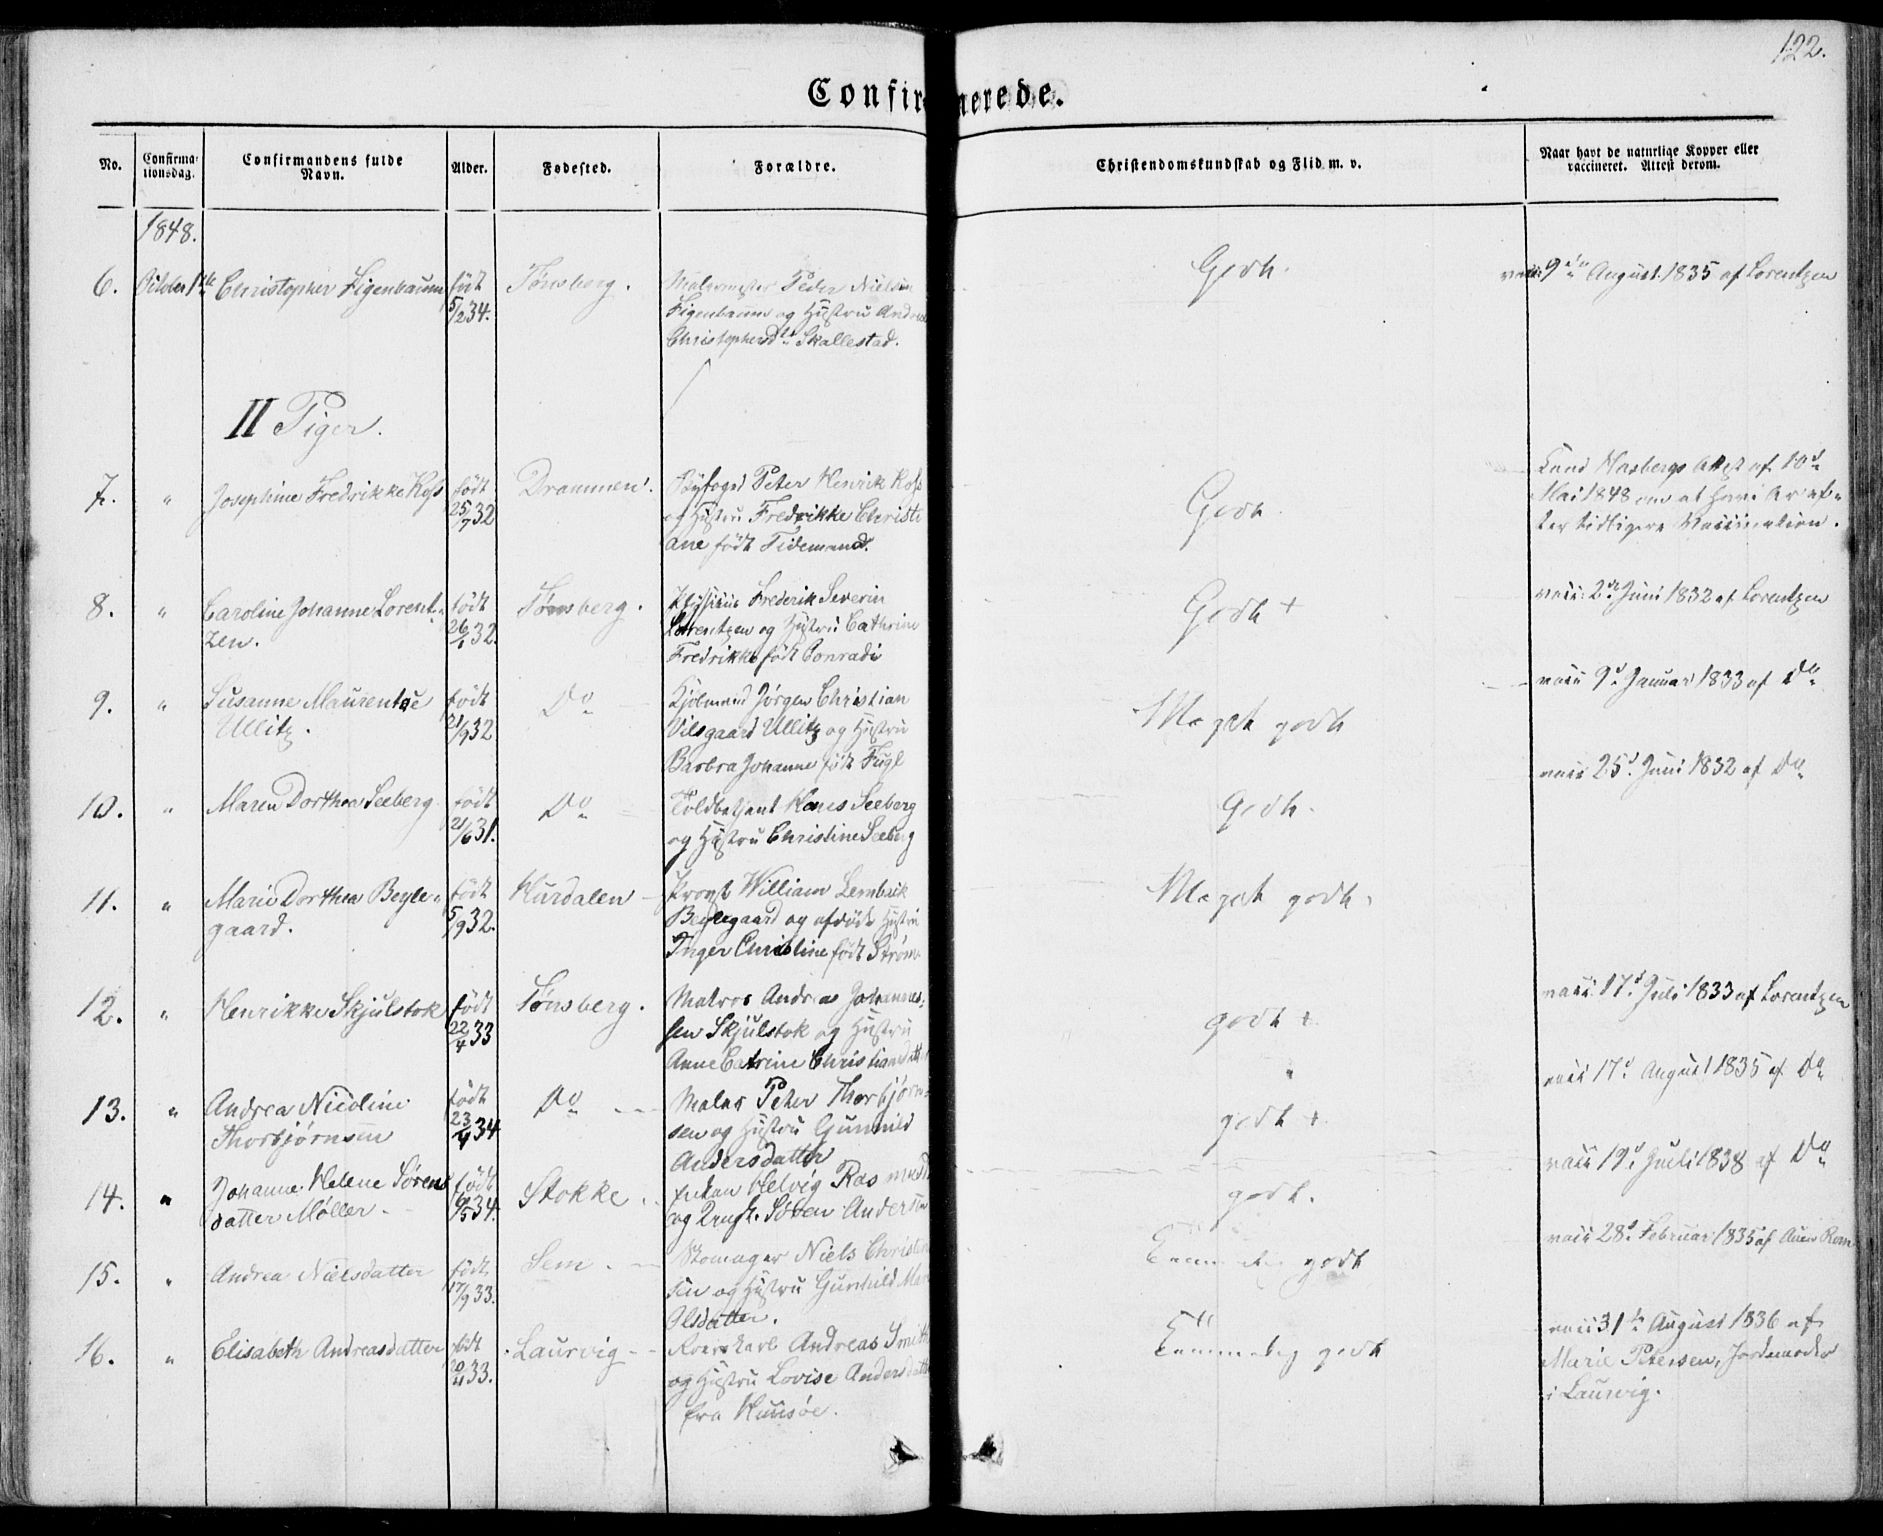 122.
Confirmerede.
No.
Confirma-
tionsdag.
Confirmandens fulde
Navn.
Alder.
Fødested.
Forældre.
Christendomskundskab og Flid m. v.
Naar havt de naturlige Kopper eller
vaccineret. Attest derom.
1848.
6. October 1ste Christopher Figenbaum født 5/2 34. Tønsberg. Malermester Peder Nielsen
Figenbaum og Hustru Andrea
Christophersdtr Skallestad.
Godh. vacc: 9de August 1835 af Lorentzen
II Piger.
7. " Josephine Fredrikke Koss født 25/7 32 Drammen. Byfoged Peter Henrik Koss
og Hustru Fredrikke Christi
ane født Tidemand.
Godh. Hasbergs Attest af 10de
Mai 1848 om at have Ar ef-
ter tidligere Vaccination.
8. " Caroline Johanne Lorent-
zen. født 26/1 32. Tønsberg. Physicus Frederik Severin
Lorentzen og Hustru Cathrine
Fredrikke født Conradi
Godh + vacc: 2de Juni 1832 af Lorentzen
9. " Susanne Maurentze
Ullitz. født 21/9 32 Do Hjulmand Jørgen Christian
Vilsgaard Ullitz og Hustru
Barbra Johanne født Fugl
Meget godh vacc 9d Januar 1833 af Do
10. " Maren Dorthea Seeberg født 21/6 31. Do Toldbetjent Hans Seeberg
og Hustru Christine Seeberg
Godh. vacc 25d Juni 1832 af Do
11. " Marie Dorthea Beyle-
gaard. født 5/9 32. Hurdalen Provst William Lembrik
Beylegaard og afdøde Hustru
Inger Christine født Strøm
Meget godh.
12. " Henrikke Skjulstok født 22/4 33 Tønsberg. Matros Andreas Johannes-
sen Skjulstok og Hustru
Anne Catrine Christiansdatter
godh + vacc. 17d Juli 1833 af Lorentzen
13. " Andrea Nicoline
Thorbjørnsen født 23/4 34 Do Maler Peter Thorbjørn-
sen og Hustru Gunnild
Andersdatter
godh + vacc 17d August 1835 af Do
14. " Johanne Helene Sørens
datter Møller født 6/5 34. Stokke Enken Helvig Rasmusd
og Sören Andersen
godh. vacc 19d Juli 1838 af Do
15. " Andrea Nielsdatter født 17/9 33. Sem. Skomager Niels Christen
sen og Hustru Gunhild Mar
Olsdatter.
Temmelig godh vacc 28d Februar 1835 af
16. " Elisabeth Andreasdatter født 33. Laurvig Andreas Smith
og Hustru Lovise Andersdatter
fra Huusøe.
Temmelig godh vacc 31te August 1836 af
Marie Petersen, Jordemoder
i Laurvig.